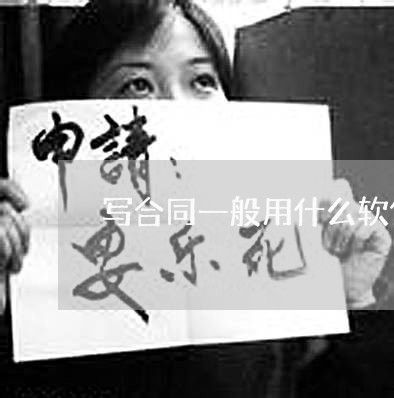 申請：
写合同一般用什么软
乐死